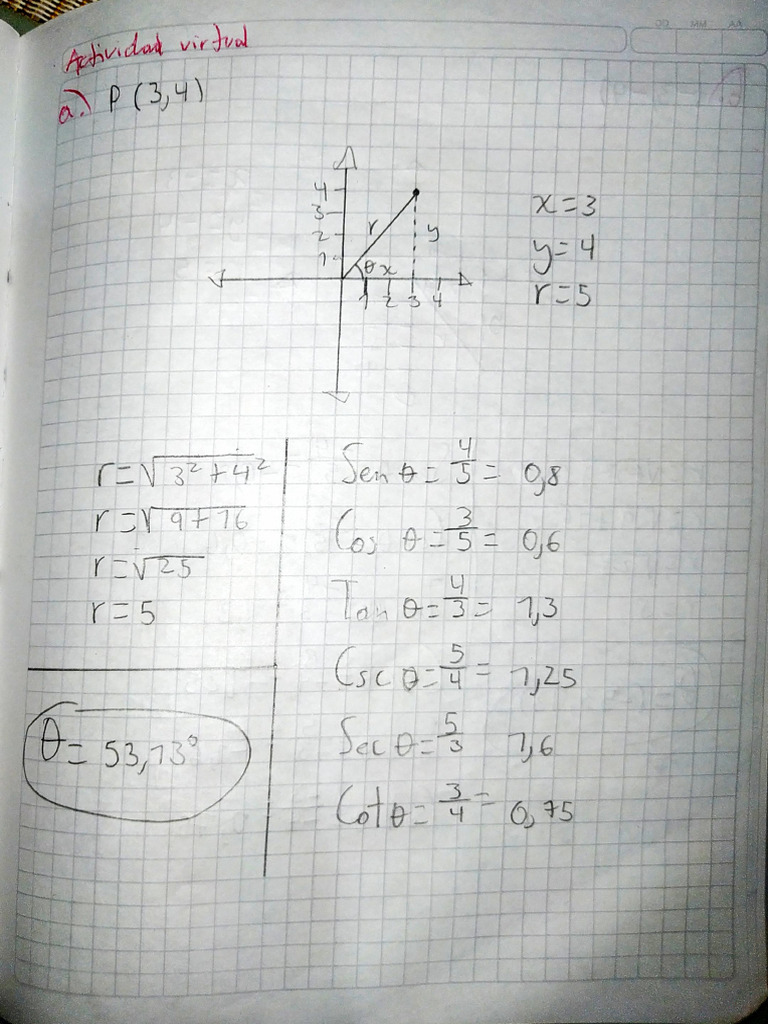 DD MM AA
Actividad virtual
a.) P (3,4)
4
3
2
1
r
y
θ x
1 2 3 4
x=3
y=4
r=5
r=√3²+4²
r=√9+16
r=√25
r=5
θ= 53,13°
Sen θ = 4/5 = 0,8
Cos θ = 3/5 = 0,6
Tan θ = 4/3 = 1,3
Csc θ = 5/4 = 1,25
Sec θ = 5/3 1,6
Cot θ = 3/4 = 0,75